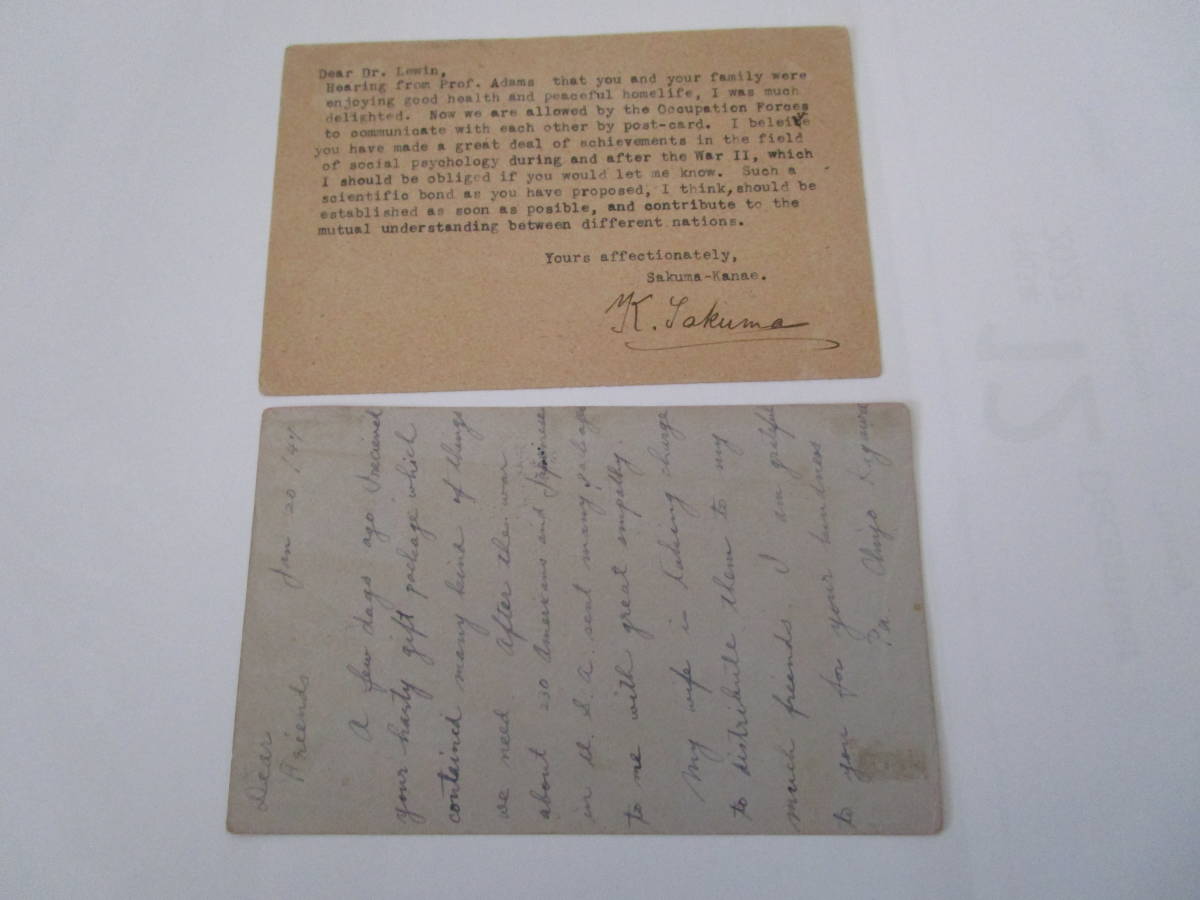 Dear Dr. Lewin,
Hearing from Prof. Adams that you and your family were
enjoying good health and peaceful homelife, I was much
delighted. Now we are allowed by the Occupation Forces
to communicate with each other by post-card. I beleive
you have made a great deal of achievements in the field
of social psychology during and after the War II, which
I should be obliged if you would let me know. Such a
scientific bond as you have proposed, I think, should be
established as soon as posible, and contribute to the
mutual understanding between different nations.
Yours affectionately,
Sakuma-Kanae.
K. Sakuma
Dear
Friends
Jan 20
A few days ago I recieved
your hasty gift package which
conteined many kind of things
we need After the war
about 230 Americans and Japanese
in U. S. A. sent many
to me with great empathy.
My wife is taking charge
to distribute them to my
much friends I am grateful
to you for your kindness